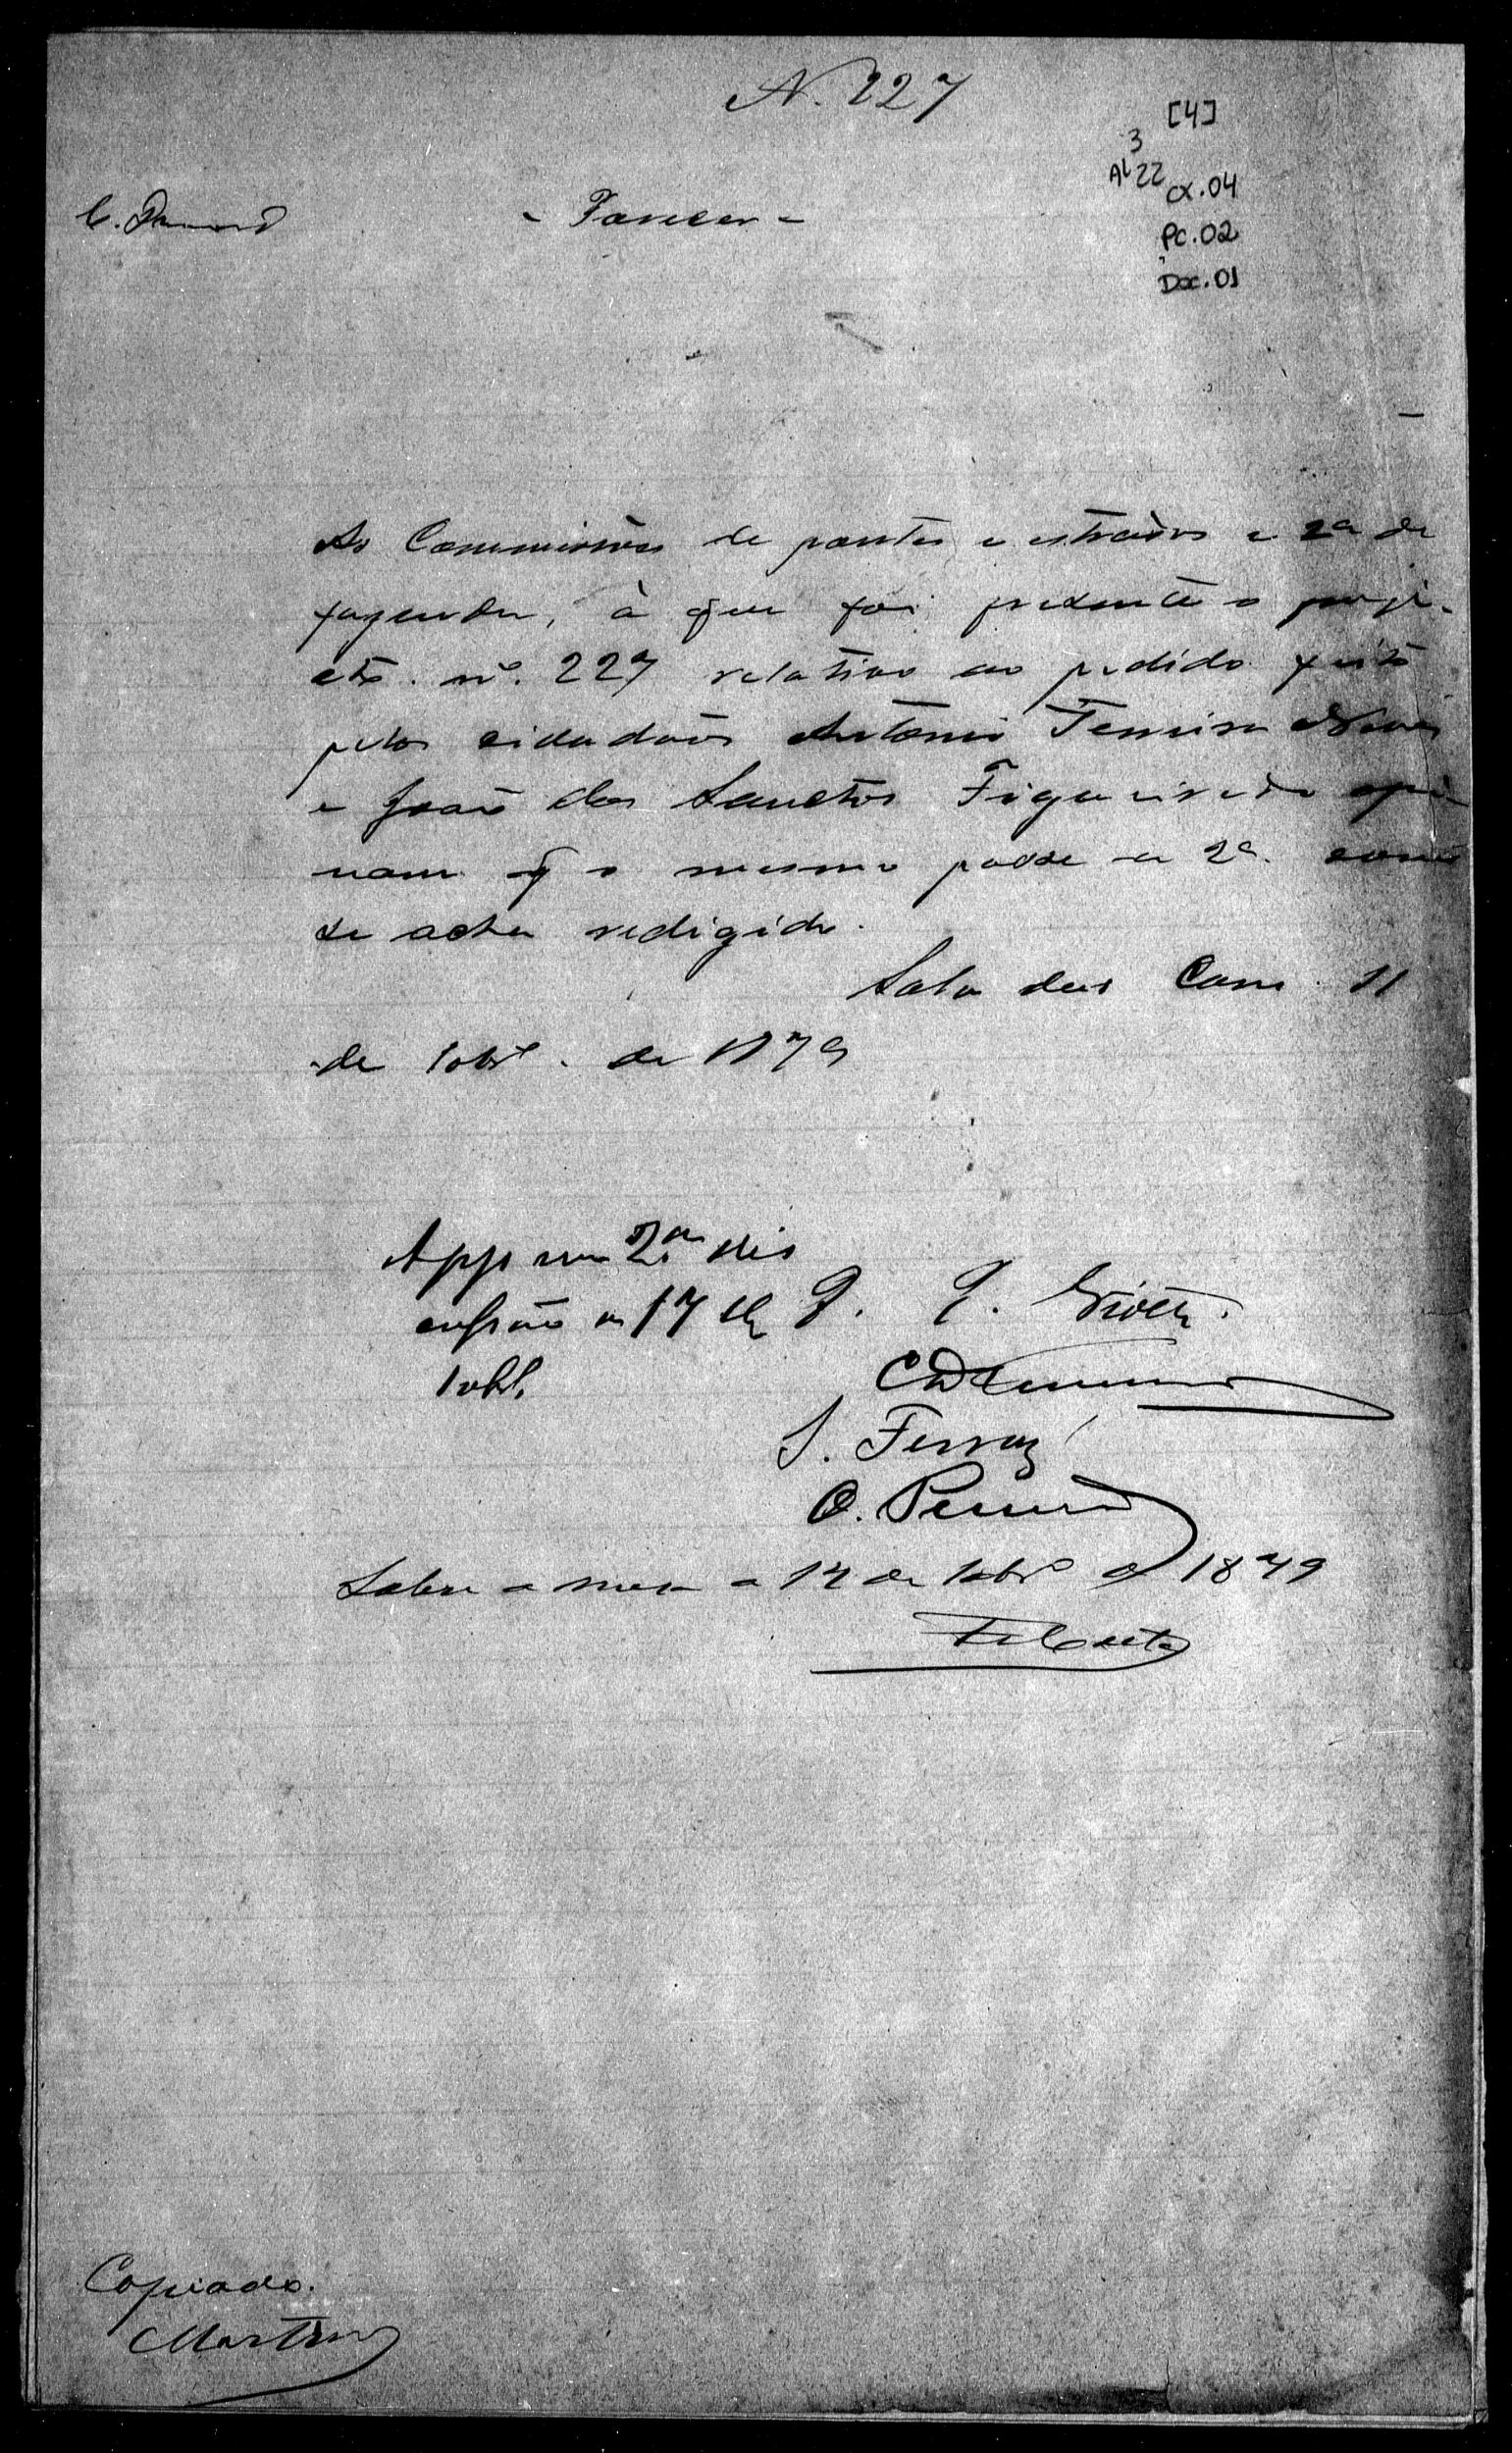 N. 227
[4]
3
AL 22
CX.04
Pc.02
Doc.01
C.
- Parecer -
As Commissões de pontes e estradas e 2ª de
fazenda, à que foi presente o proje-
cto nº. 227 relativo ao pedido feito
pelos cidadãos Antonio Ferreira Neves
e João dos Sanctos Figueiredo opi-
nam q̃ o mesmo passe a 2ª. como
se acha redigido.
Sala das Com. 11
de 10brº. de 1879
App em 2ª dis
cussão a 17 de
10br.
C
J. Ferraz
O.
Sobre a mesa a 14 de 10brº de 1879
F. Costa
Copiado.
Martins